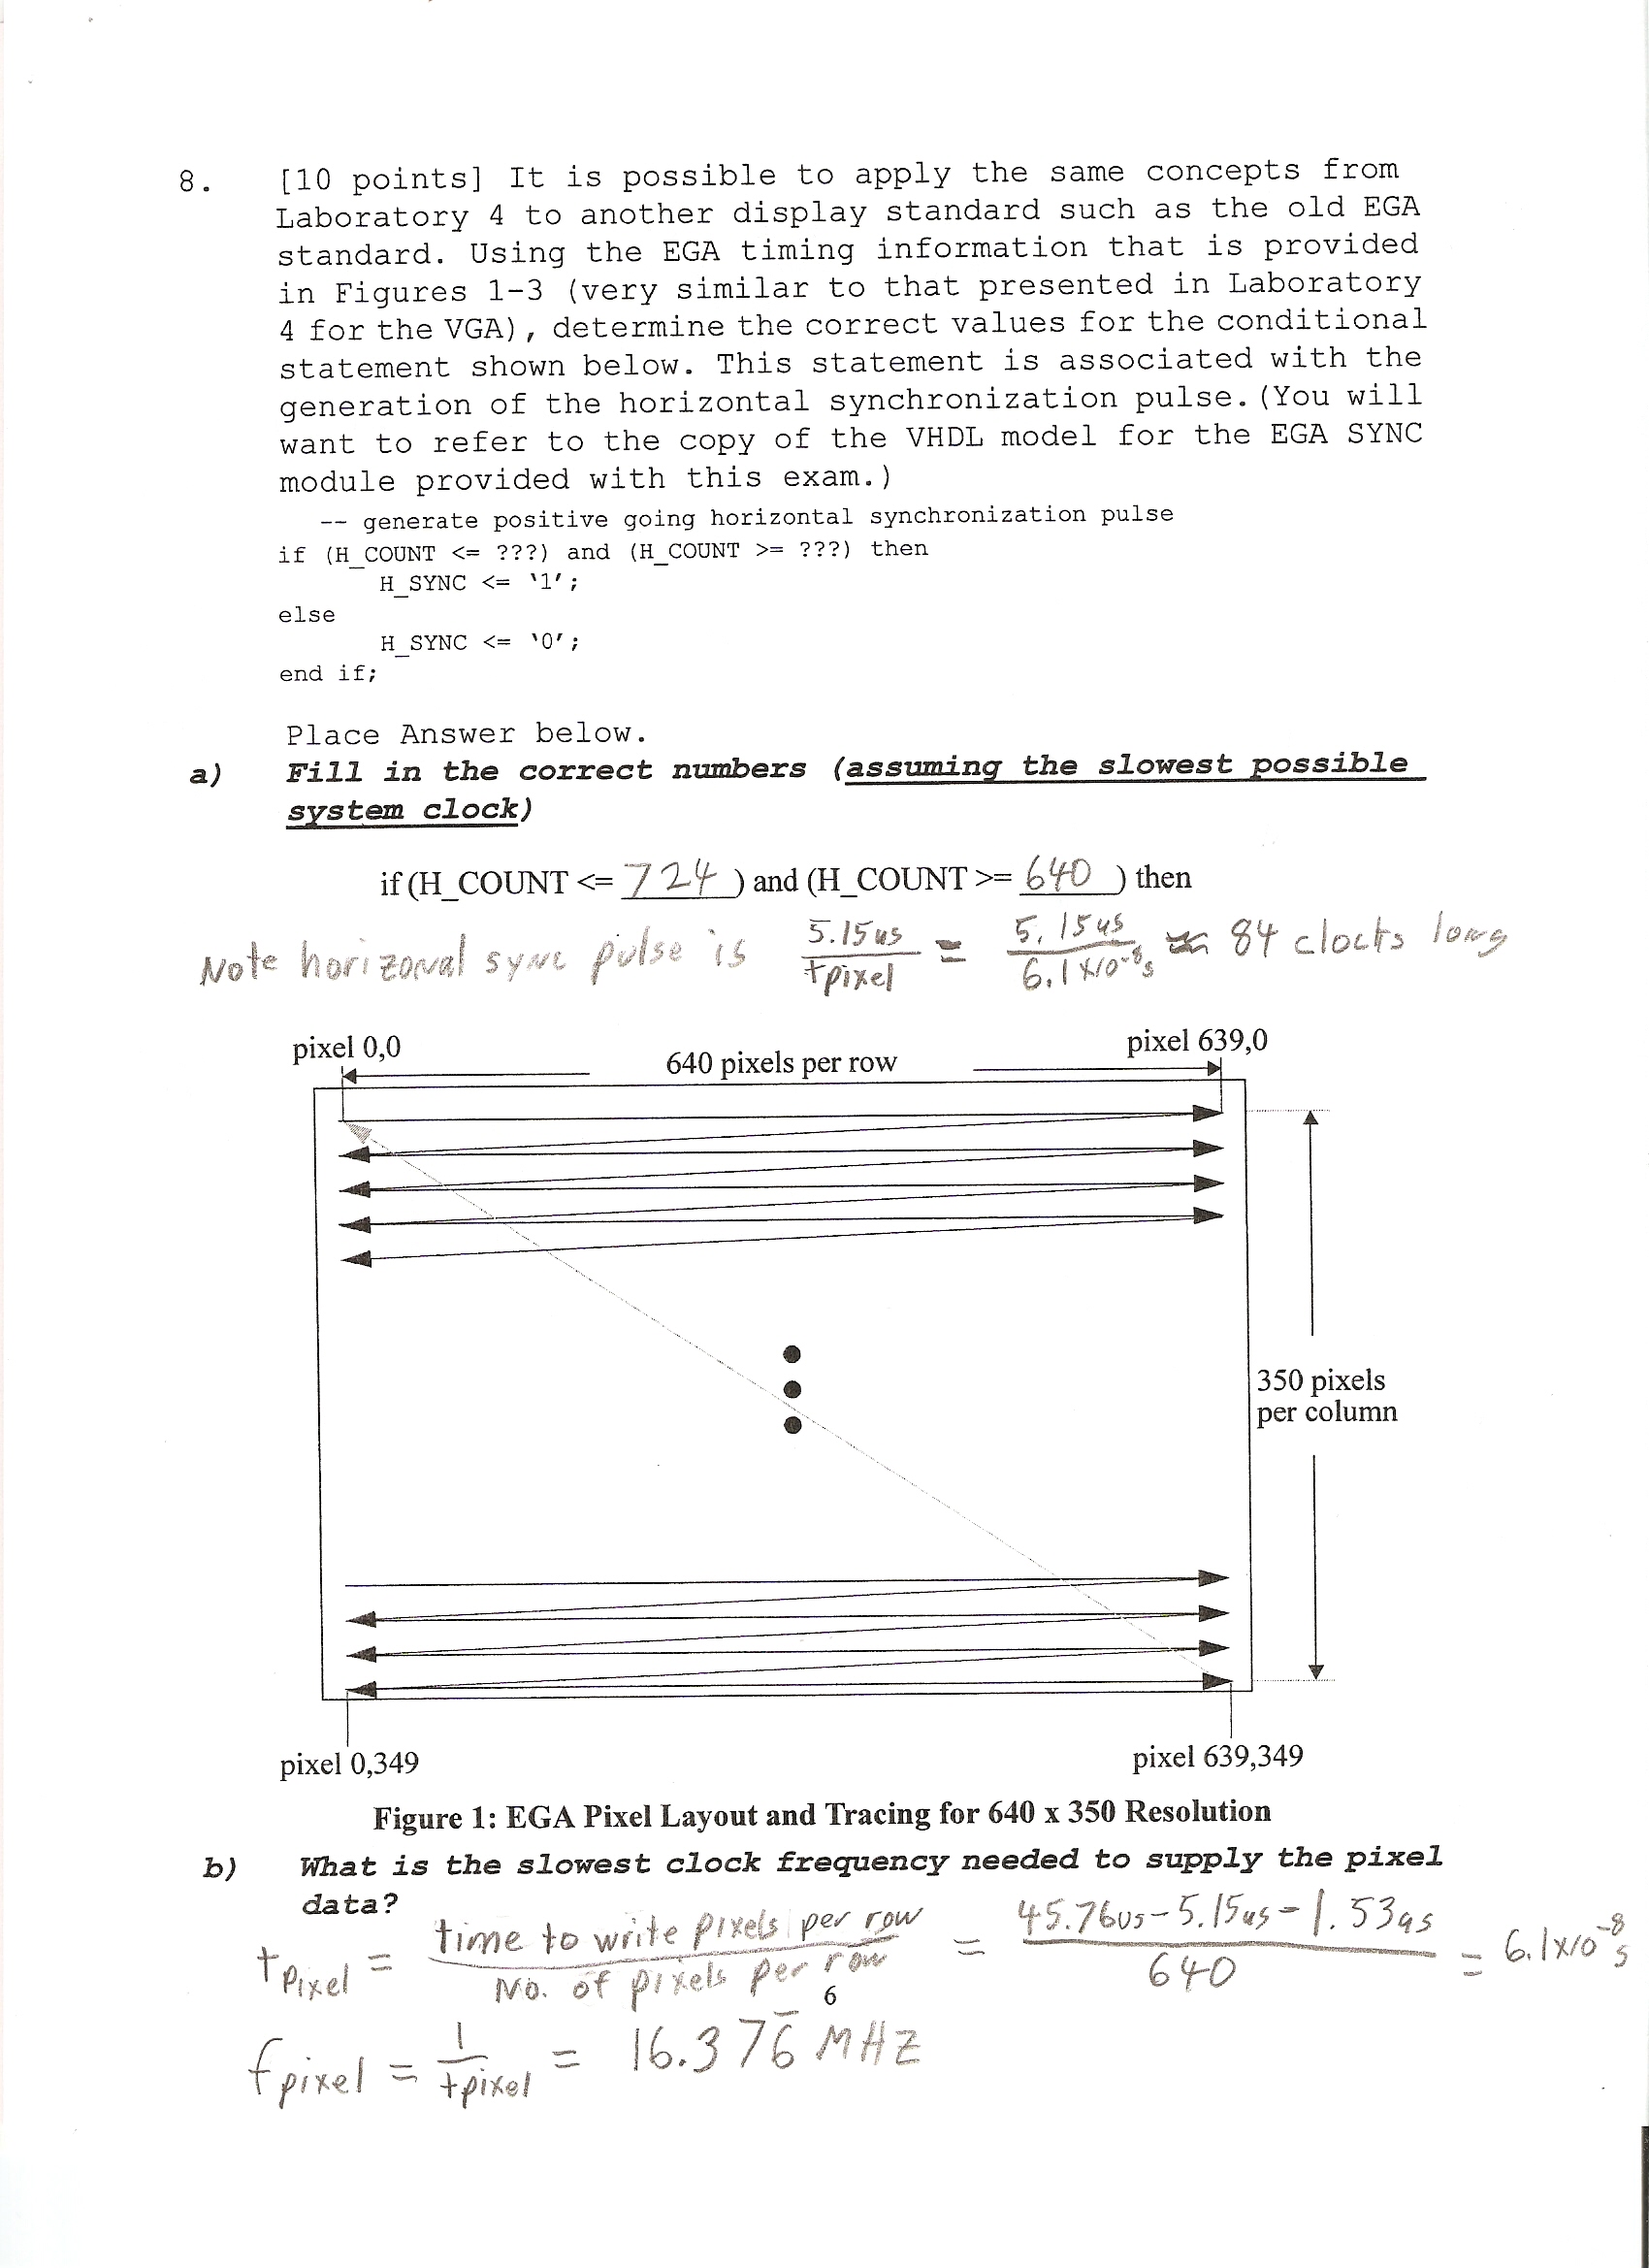 8. [10 points] It is possible to apply the same concepts from
Laboratory 4 to another display standard such as the old EGA
standard. Using the EGA timing information that is provided
in Figures 1-3 (very similar to that presented in Laboratory
4 for the VGA), determine the correct values for the conditional
statement shown below. This statement is associated with the
generation of the horizontal synchronization pulse.(You will
want to refer to the copy of the VHDL model for the EGA SYNC
module provided with this exam.)
-- generate positive going horizontal synchronization pulse
if (H_COUNT <= ???) and (H_COUNT >= ???) then
H_SYNC <= '1';
else
H_SYNC <= '0';
end if;
Place Answer below.
a) Fill in the correct numbers (assuming the slowest possible
system clock)
if (H_COUNT <= 724 ) and (H_COUNT >= 640 ) then
Note horizonal sync pulse is 5.15us / tpixel = 5.15us / 6.1x10^-8 s = 84 clocks long
pixel 0,0
640 pixels per row
pixel 639,0
350 pixels
per column
pixel 0,349
pixel 639,349
Figure 1: EGA Pixel Layout and Tracing for 640 x 350 Resolution
b) What is the slowest clock frequency needed to supply the pixel
data?
tpixel = time to write pixels per row / No. of pixels per row = 45.76us - 5.15us - 1.53us / 640 = 6.1x10^-8 s
6
fpixel = 1 / tpixel = 16.376 MHZ